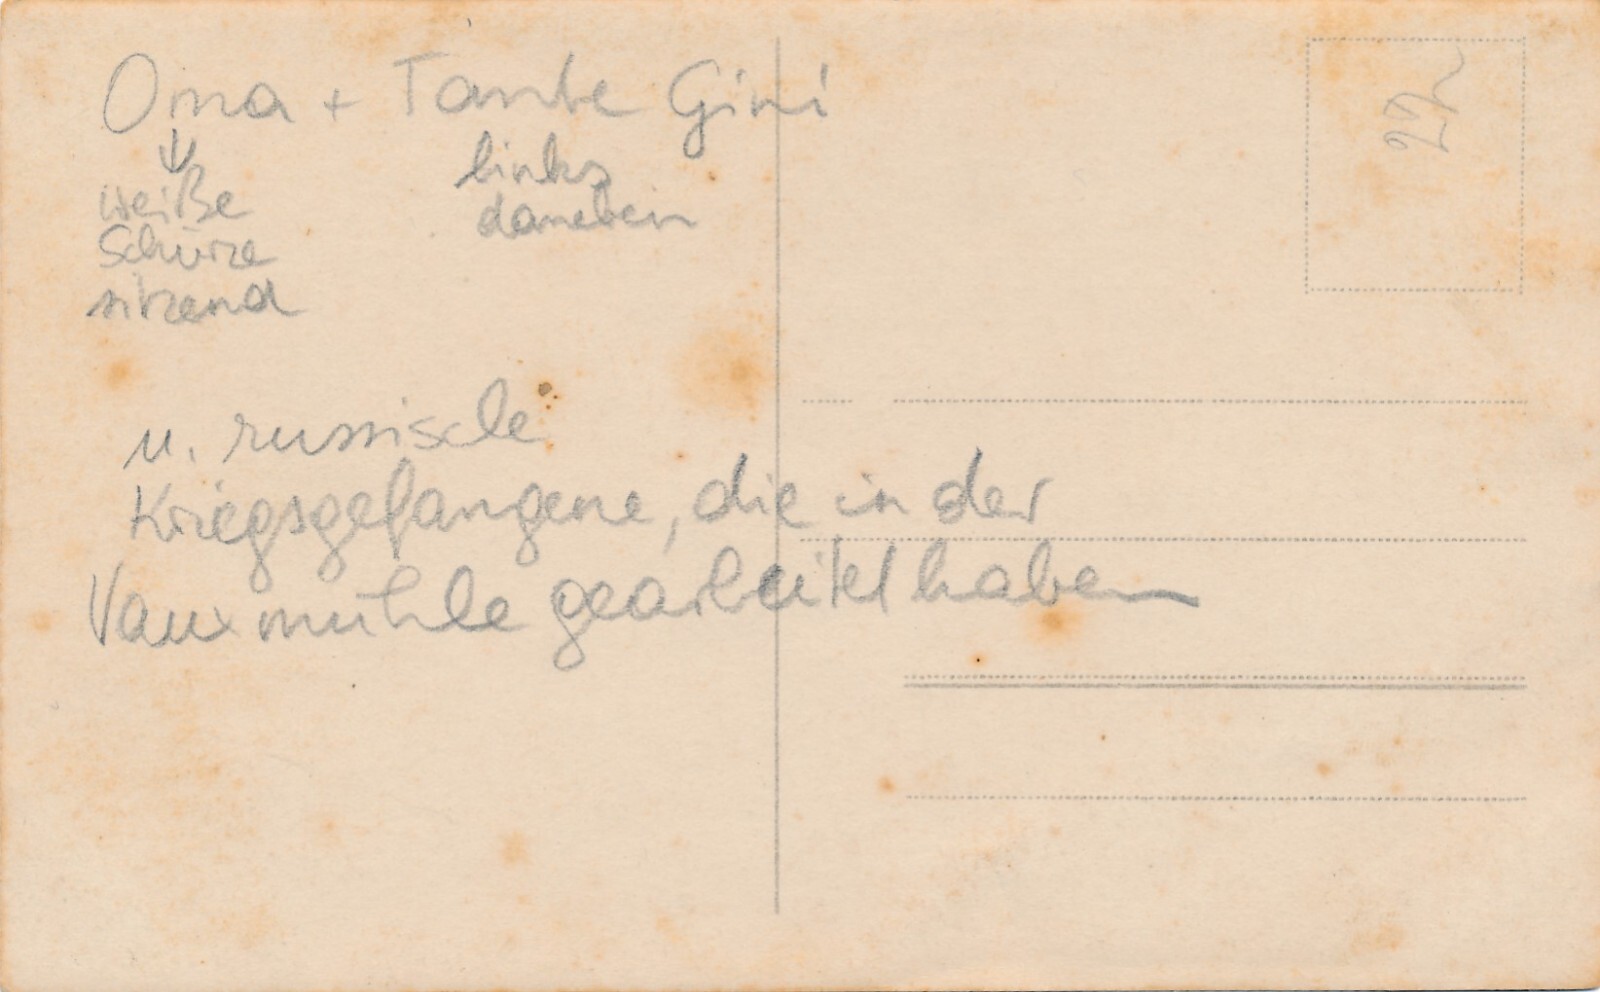 Oma + Tante Gini
↓
weiße
Schürze
sitzend
links
daneben
u. russische
Kriegsgefangene, die in der
Vauxmühle gearbeitet haben